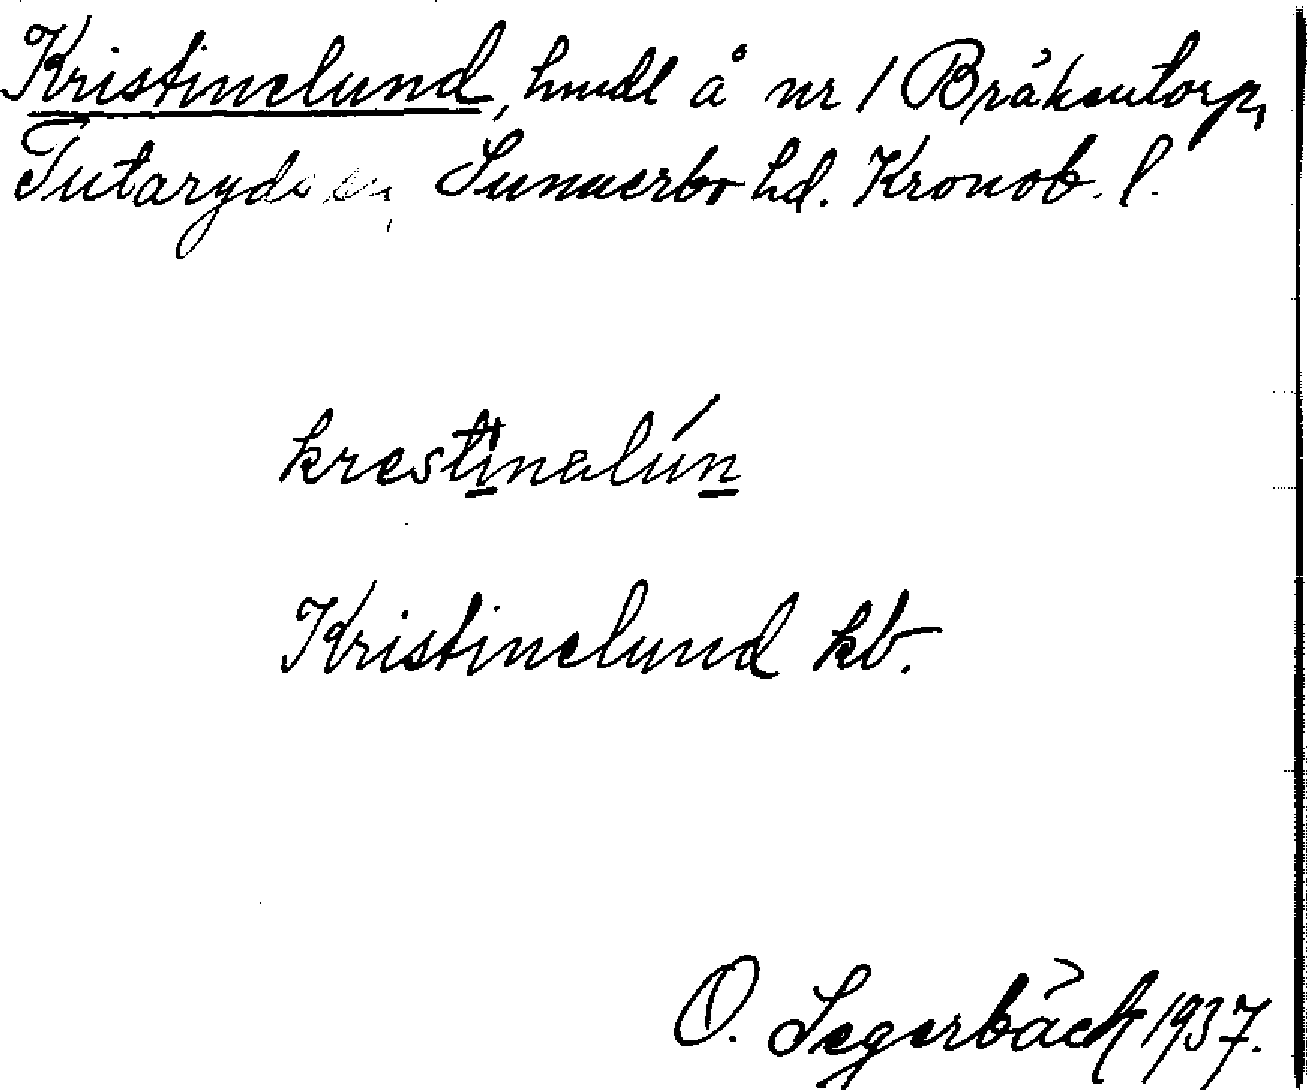 Kristinelund, hmdl å nr 1 Bråkentorp,
Tutaryds sn, Sunnerbo hd. Kronob. l.
krestinalún
Kristinelund kb.
O. Segerbäck 1937.